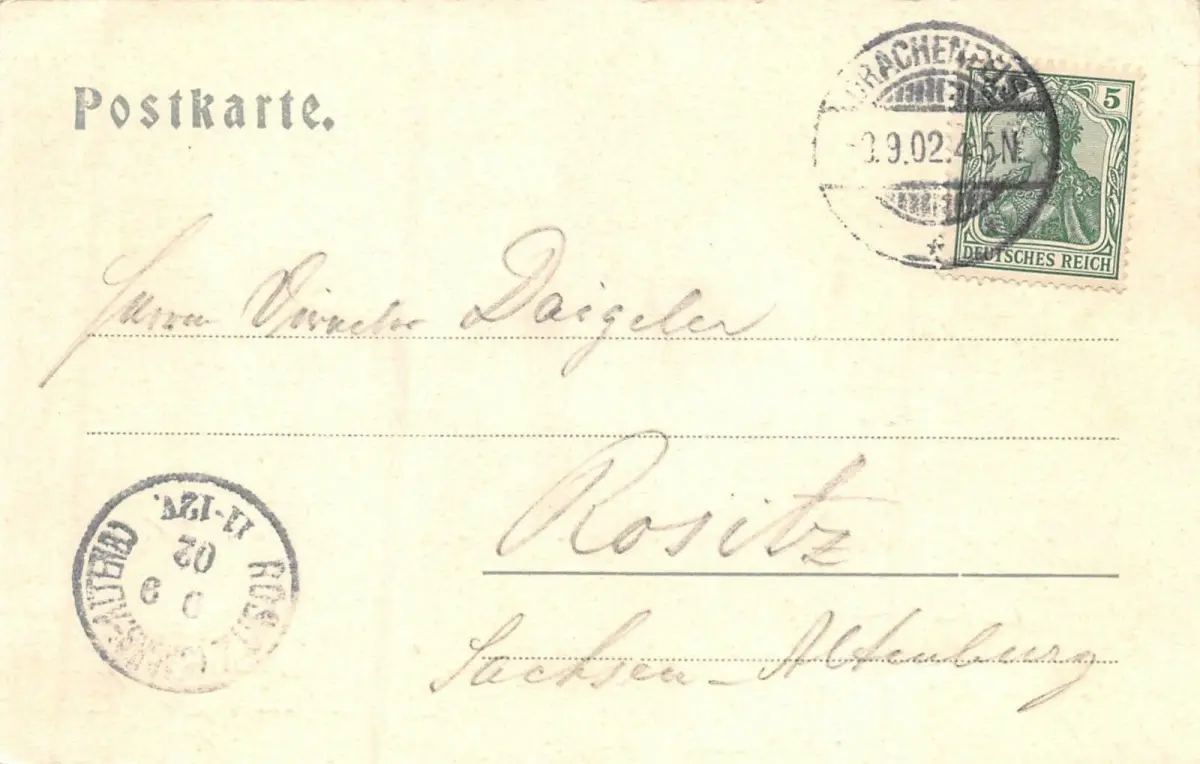 Postkarte.
DRACHENFELS
.9.02.4-5N
5
DEUTSCHES REICH
Herrn Director Daigeler
Rositz
Sachsen-Altenburg
11-12V.
02
9